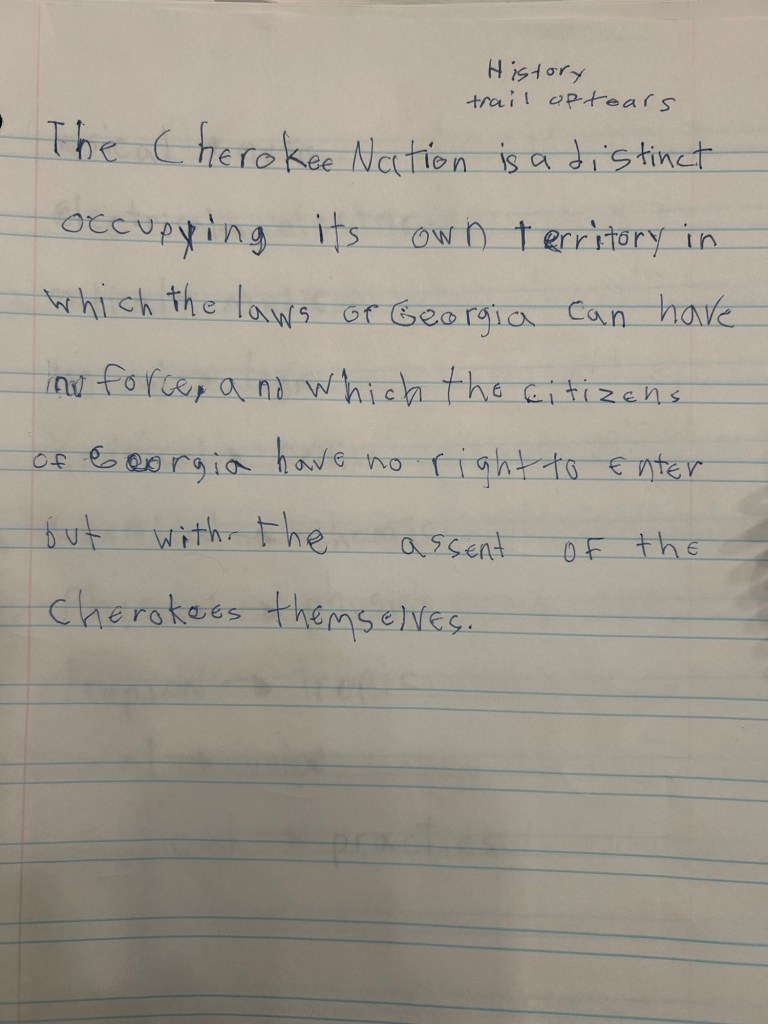 History
trail of tears
The Cherokee Nation is a distinct
occupying its own territory in
which the laws of Georgia can have
no force, and which the citizens
of Georgia have no right to enter
but with the assent of the
Cherokees themselves.